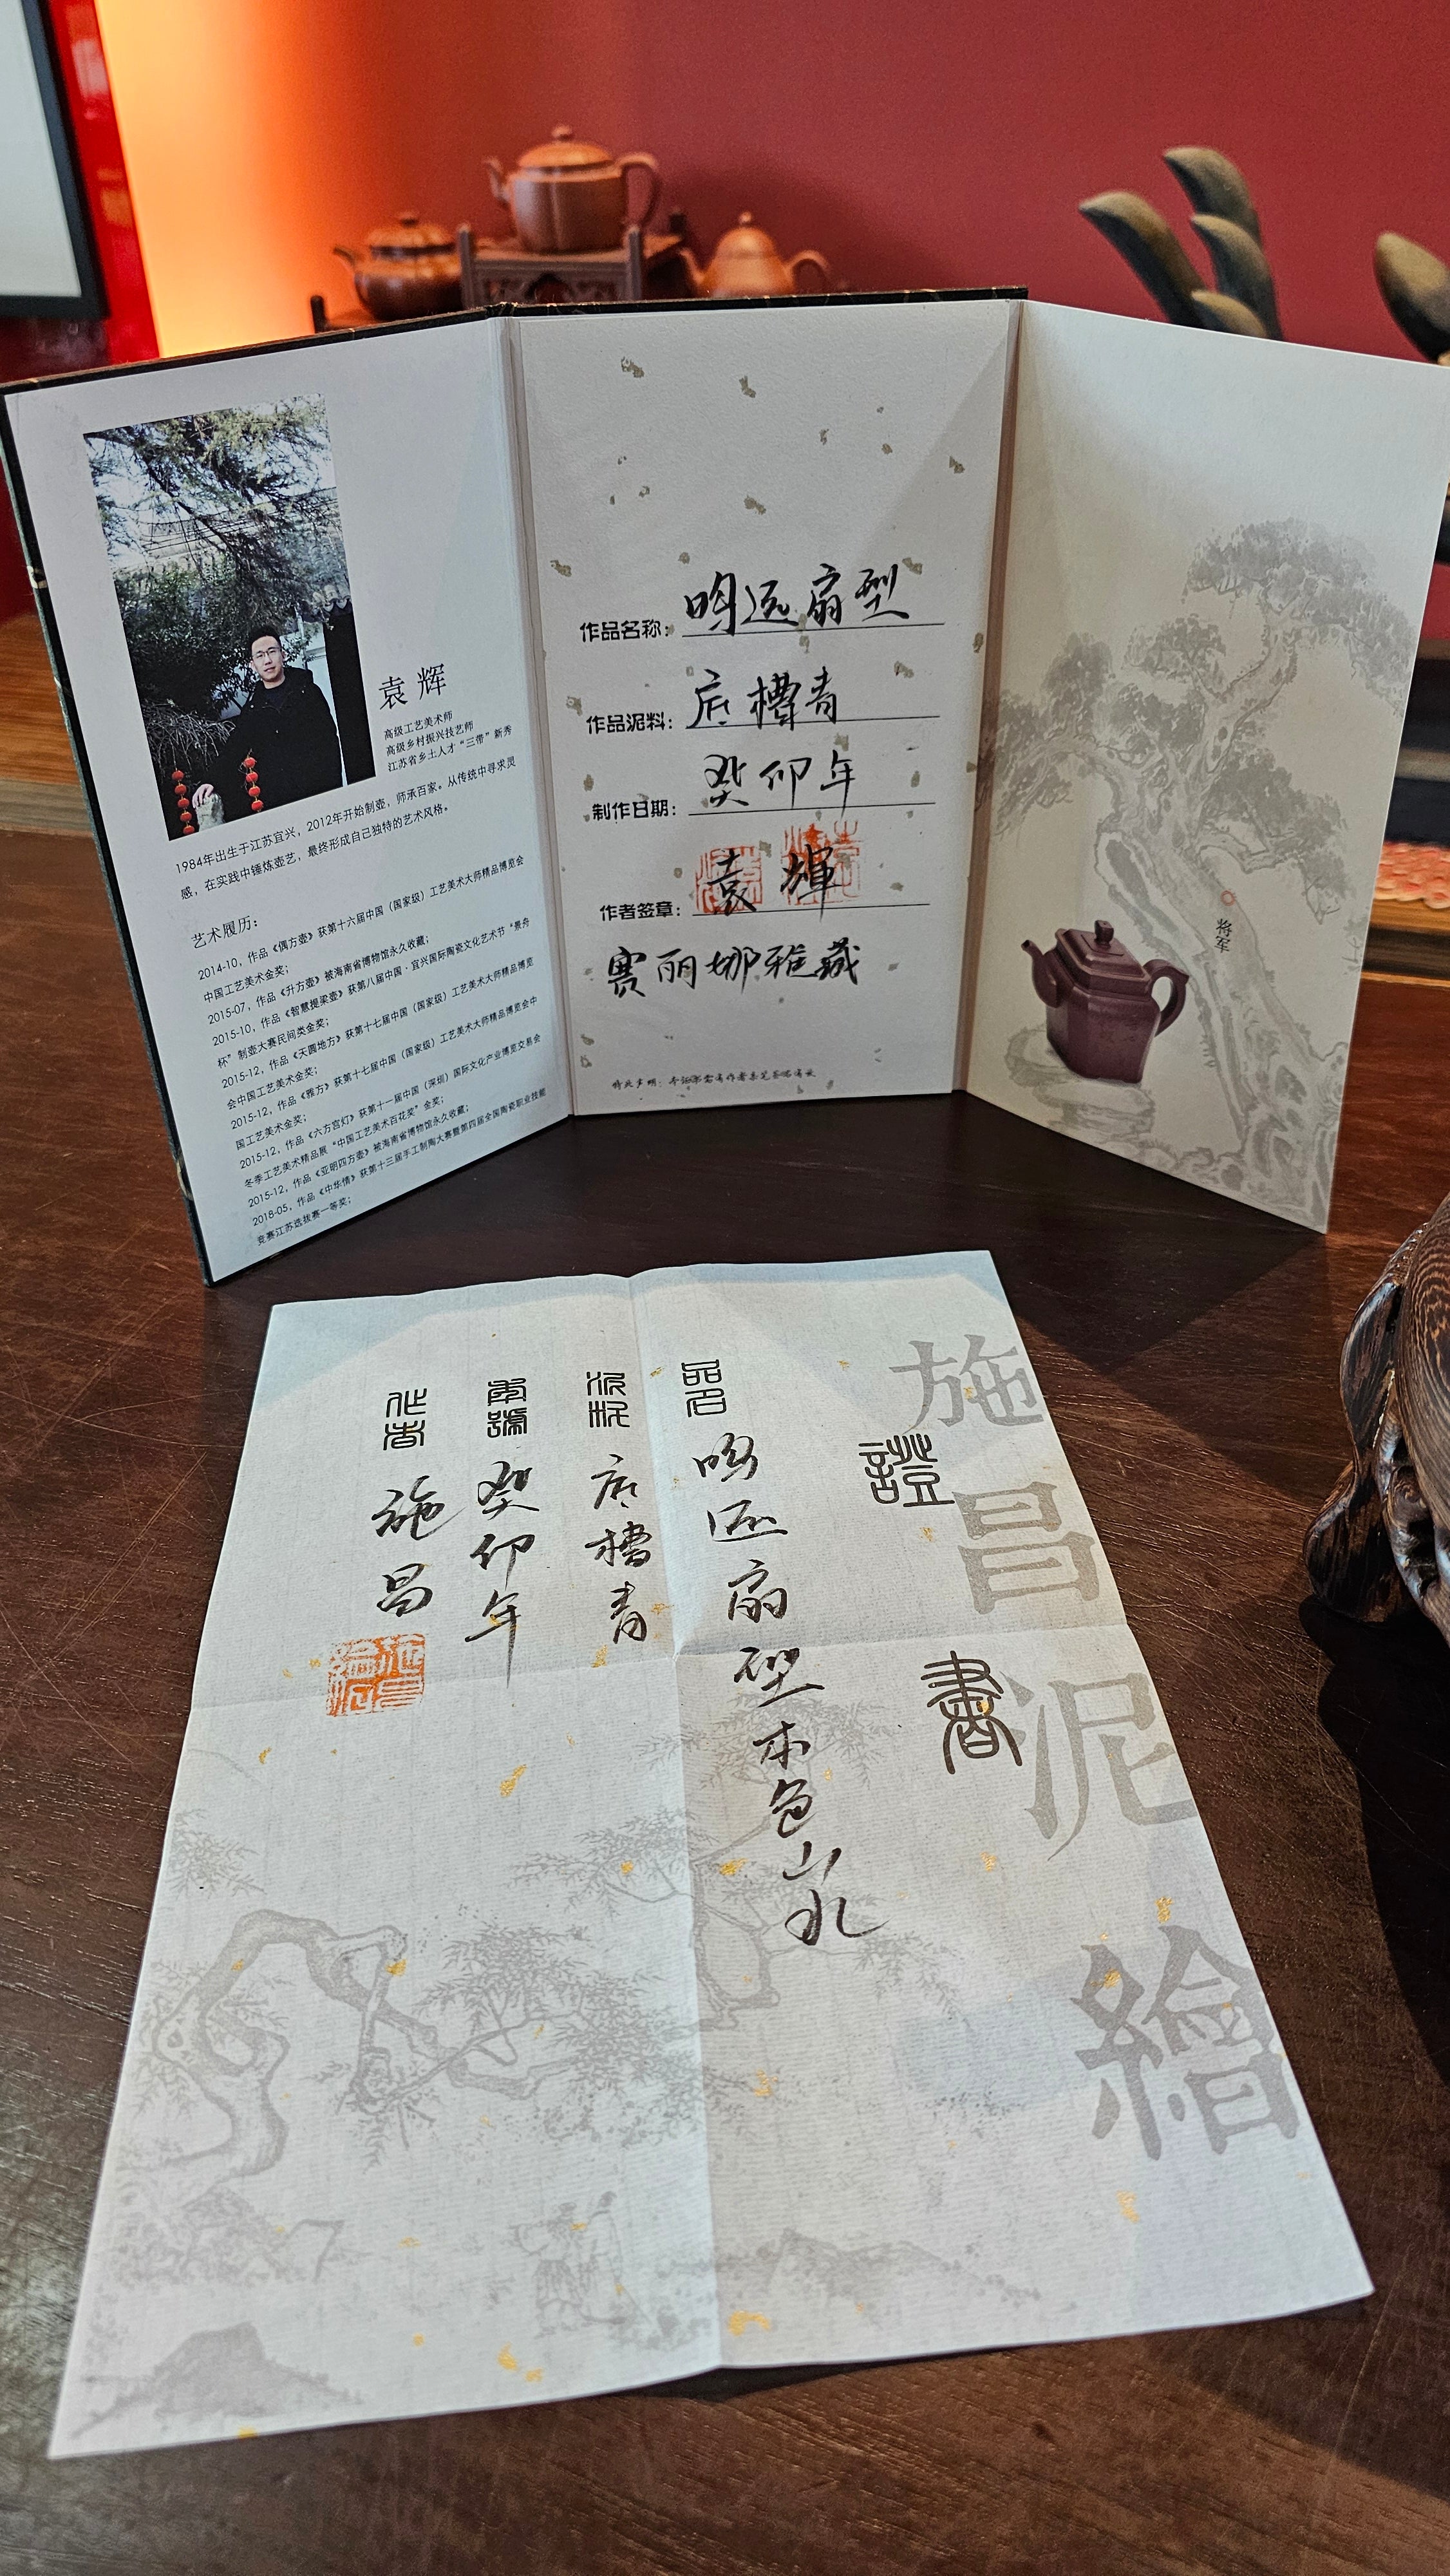 袁辉
高级工艺美术师
高级乡村振兴技艺师
江苏省乡土人才“三带”新秀
1984年出生于江苏宜兴，2012年开始制壶，师承百家。从传统中寻求灵
感，在实践中锤炼壶艺，最终形成自己独特的艺术风格。
艺术履历：
2014-10，作品《偶方壶》获第十六届中国（国家级）工艺美术大师精品博览会
中国工艺美术金奖；
2015-07，作品《升方壶》被海南省博物馆永久收藏；
2015-10，作品《智慧提梁壶》获第八届中国·宜兴国际陶瓷文化艺术节“景舟
杯”制壶大赛民间类金奖；
2015-12，作品《天圆地方》获第十七届中国（国家级）工艺美术大师精品博览
会中国工艺美术金奖；
2015-12，作品《雅方》获第十七届中国（国家级）工艺美术大师精品博览会中
国工艺美术金奖；
2015-12，作品《六方宫灯》获第十一届中国（深圳）国际文化产业博览交易会
冬季工艺美术精品展“中国工艺美术百花奖”金奖；
2015-12，作品《亚明四方壶》被海南省博物馆永久收藏；
2018-05，作品《中华情》获第十三届手工制陶大赛暨第四届全国陶瓷职业技能
竞赛江苏选拔赛一等奖；
作品名称：鸣远扇型
作品泥料：底槽青
制作日期：癸卯年
作者签章：袁輝
赛丽娜雅藏
特此声明：本证书需有作者亲笔签名有效
将军
施昌泥繪
證書
品名 鸣远扇型本色山水
泥料 底槽青
癸卯年
作者 施昌